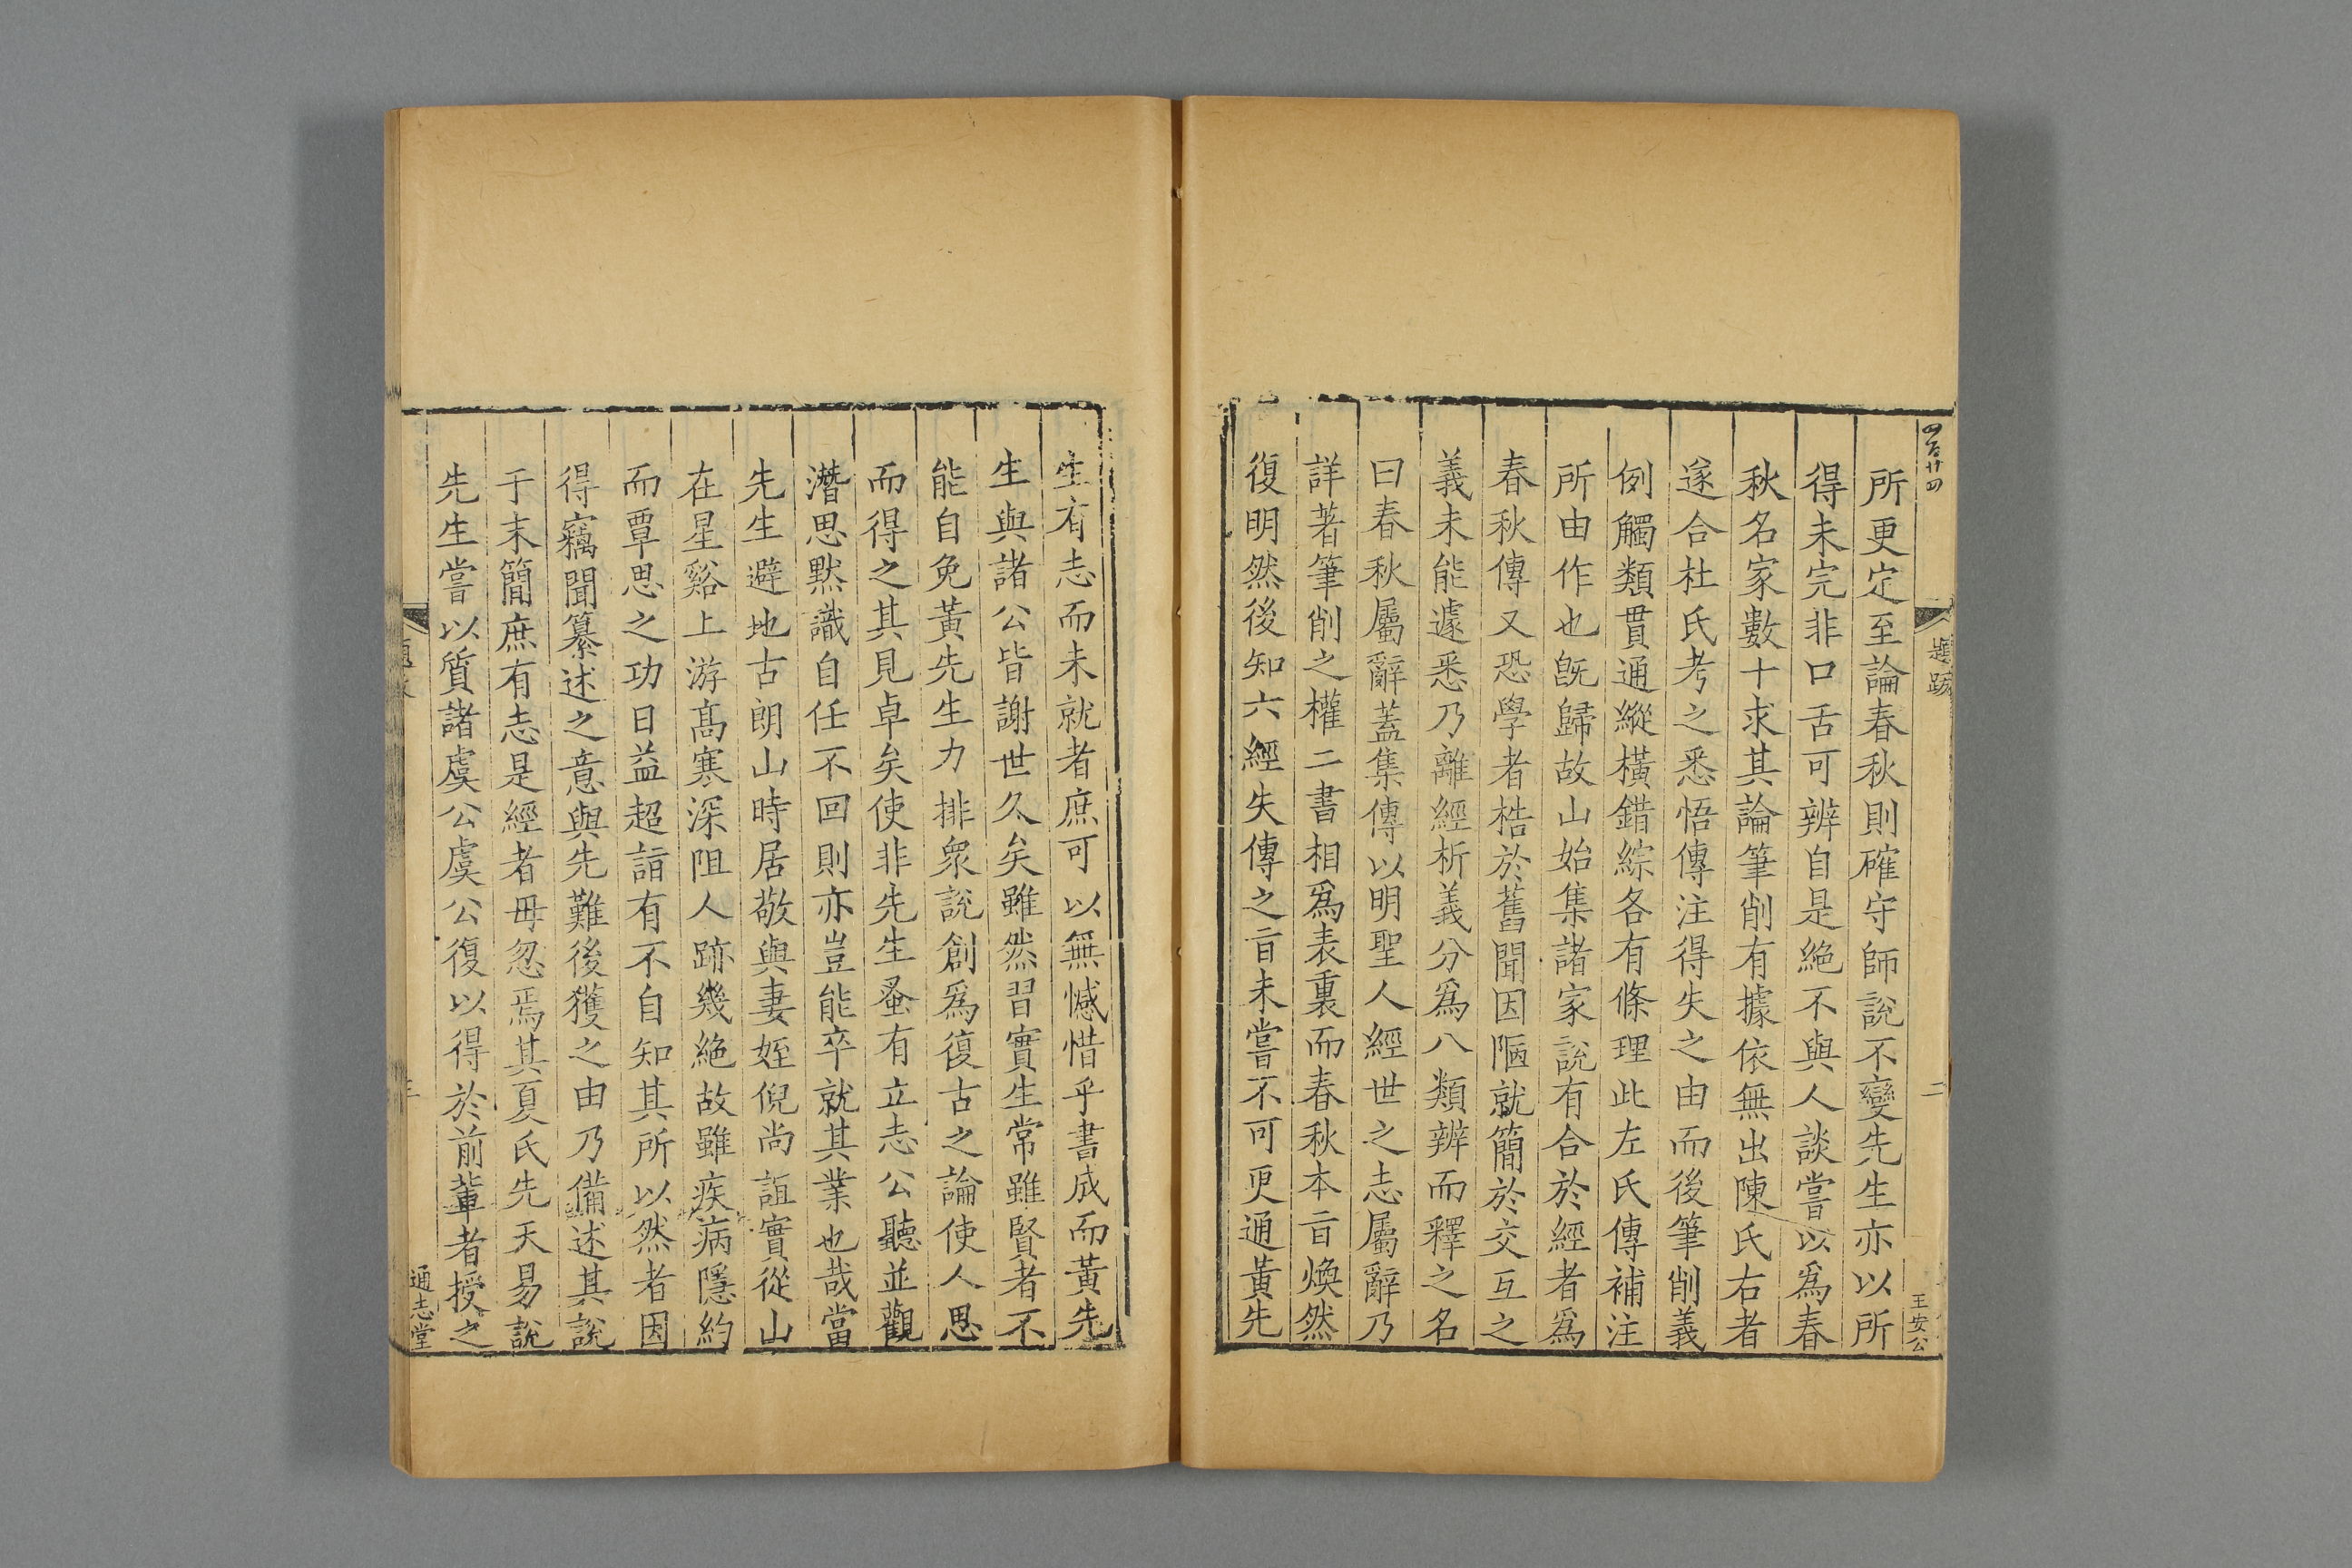 四百廿四
題跋
二
王安公
所更定至論春秋則確守師說不變先生亦以所
得未完非口舌可辨自是絕不與人談嘗以爲春
秋名家數十求其論筆削有據依無出陳氏右者
遂合杜氏考之悉悟傳注得失之由而後筆削義
例觸類貫通縱橫錯綜各有條理此左氏傳補注
所由作也旣歸故山始集諸家說有合於經者爲
春秋傳又恐學者梏於舊聞因陋就簡於交互之
義未能遽悉乃離經析義分爲八類辨而釋之名
曰春秋屬辭蓋集傳以明聖人經世之志屬辭乃
詳著筆削之權二書相爲表裏而春秋本㫖煥然
復明然後知六經失傳之㫖未嘗不可更通黃先
生有志而未就者庶可以無憾惜乎書成而黃先
生與諸公皆謝世久矣雖然習實生常雖賢者不
能自免黃先生力排衆說創爲復古之論使人思
而得之其見卓矣使非先生蚤有立志公聽並觀
潛思默識自任不回則亦豈能卒就其業也哉當
先生避地古朗山時居敬與妻姪倪尚誼實從山
在星谿上游高寒深阻人跡幾絕故雖疾病隱約
而覃思之功日益超詣有不自知其所以然者因
得竊聞纂述之意與先難後獲之由乃備述其說
于末簡庶有志是經者毋忽焉其夏氏先天易說
先生嘗以質諸虞公虞公復以得於前輩者授之
通志堂